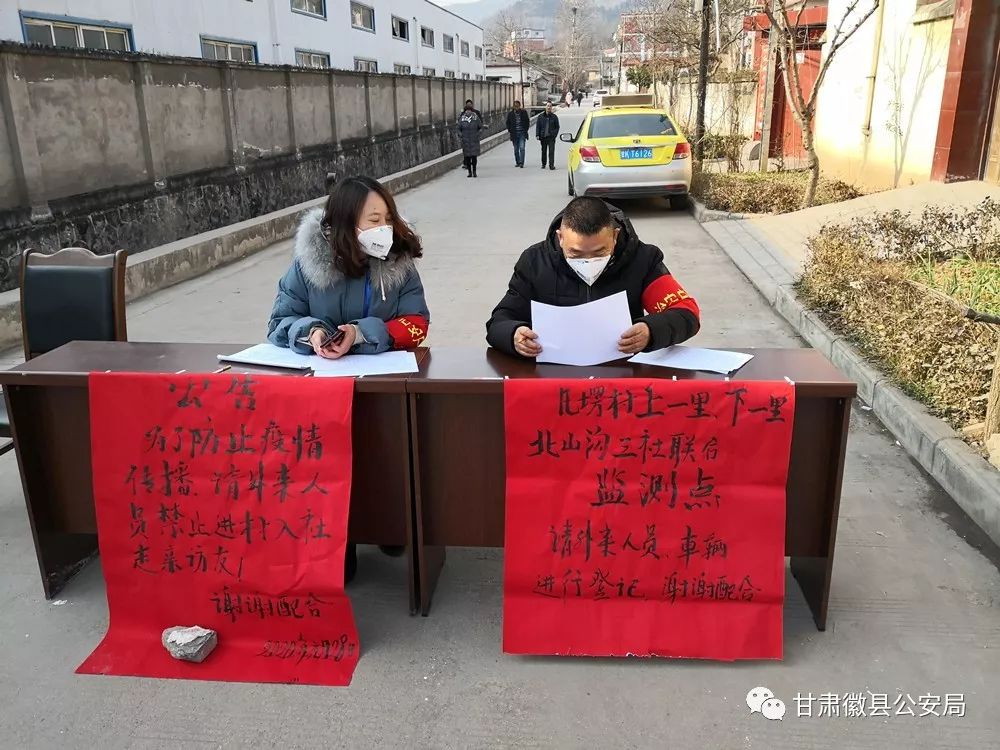 公告
为了防止疫情
传播、请外来人
员禁止进村入社
走亲访友!
谢谢配合
2020年元月28日
瓦塄村上一里、下一里
北山沟三社联合
监测点
请外来人员、车辆
进行登记、谢谢配合
T6126
甘肃徽县公安局